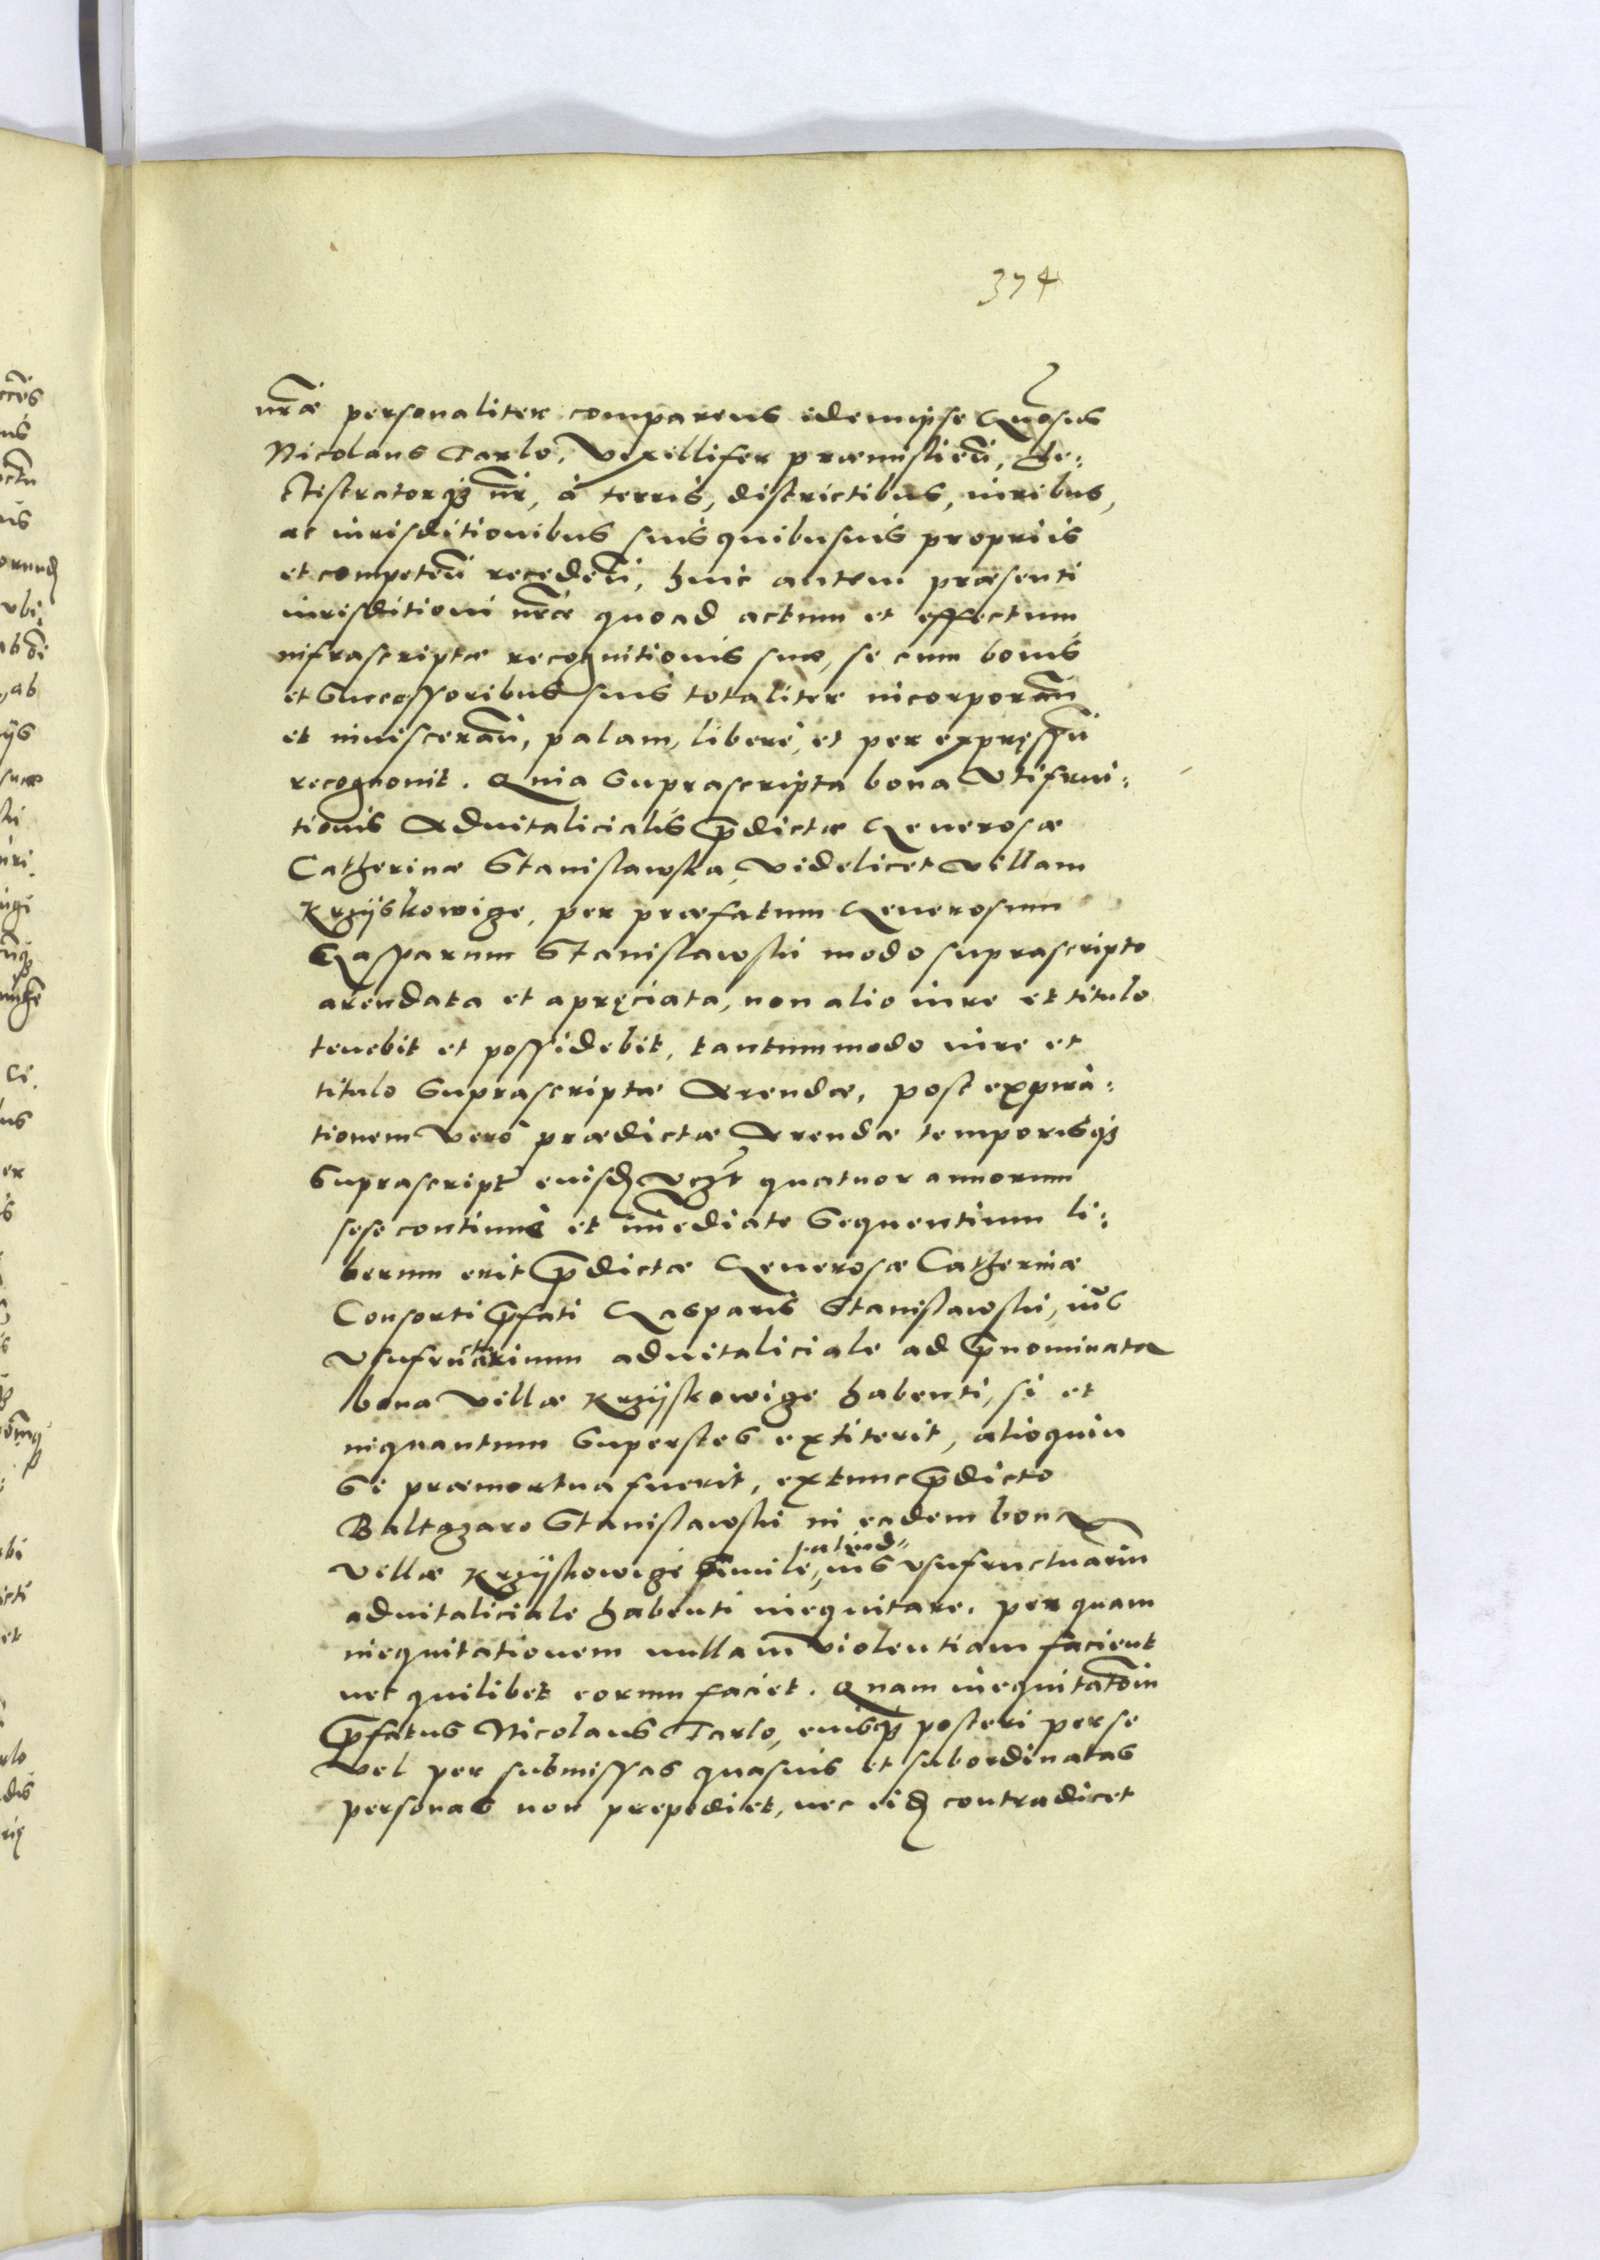 374
nr̃æ personaliter comparens idemipse Gñosus
Nicolaus Tarlo, Vexillifer præmislieñ, De-
ztestratorq3 nr̃, à terris, districtibus, iuribus,
ac iurisditionibus suis quibusuis proprijs
et competeñ recedeñ, huic autem præsenti
iurisditioni nr̃æ quoad actum et effectum
infrascriptæ recognitionis suæ, se cum bonis
et Successoribus suis totaliter incorporañ
et inuiscerañ, palam, liberè, et per expręssũ
recognouit. Quia Suprascripta bona Vtifrui-
tionis Aduitalicialis p̃dictæ Generosæ
Catherinæ Stanislawska, videlicet villam
Krzÿskowice, per præfatum Generosum
Gasparum Stanislawski modo suprascripto
arendata et apręciata, non alio iure et titulo
tenebit et possidebit, tantummodo iure et
titulo Suprascriptæ Arendæ, post expira-
tionem verò prædictæ Arendæ temporisq3
Suprascript̃ eiusd vcz̃t quatuor annorum
sese continuè et im̃ediate Sequentium li-
berum erit p̃dictæ Generosæ Catherinæ
Consorti p̃fati Gasparis Stanislawski, ius
vsufructuarium aduitaliciale ad p̃nominata
bona villæ Krzÿskowice habenti, si et
inquantum Superstes extiterit, alioquin
Si præmortua fuerit, extunc p̃dicto
Baltazaro Stanislawski in eadem bona
villæ Krzÿskowice simile, ius vsufructuariũ
aduitaliciale habenti inequitare. per quam
inequitationem nullam violentiam facient
nec quilibet eorum faciet. Quam inequitatõm
p̃fatus Nicolaus Tarlo, eiusq3 posteri per se
vel per submissas quasuis et subordinatas
personas non prepediet, nec eid contradicet